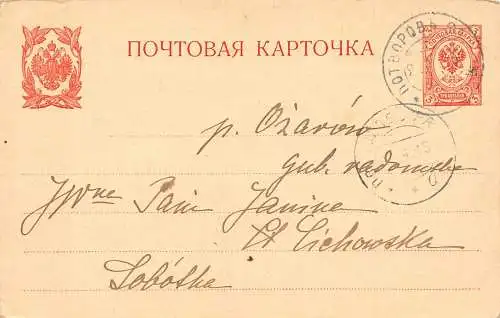 ПОЧТОВАЯ КАРТОЧКА
ПОТВОРОВЪ
p. Ożarów
gub. radomska
JWne Pani Janine
Cichowska
Sobótka